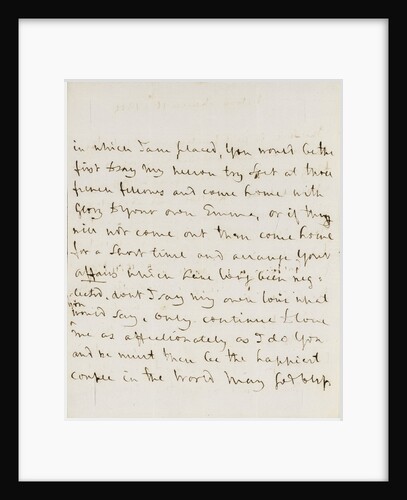 in which I am placed, You would be the
first to say my Nelson try & get at those
french fellows and come home with
Glory to Your own Emma, or if they
will not come out then come home
for a short time and arrange Your
affairs which have long been neg-
lected, dont I say my own love what
you would say. Only continue to love
me as affectionately as I do You
and we must then be the happiest
couple in the World May God bless